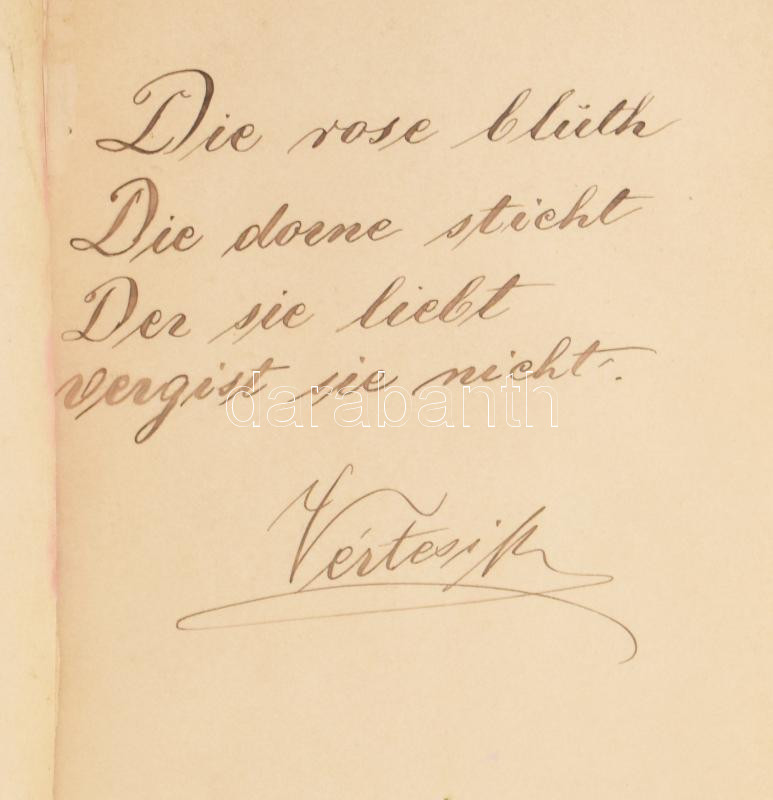 Die rose blüth
Die dorne sticht
Der sie liebt
vergist sie nicht.
darabanth